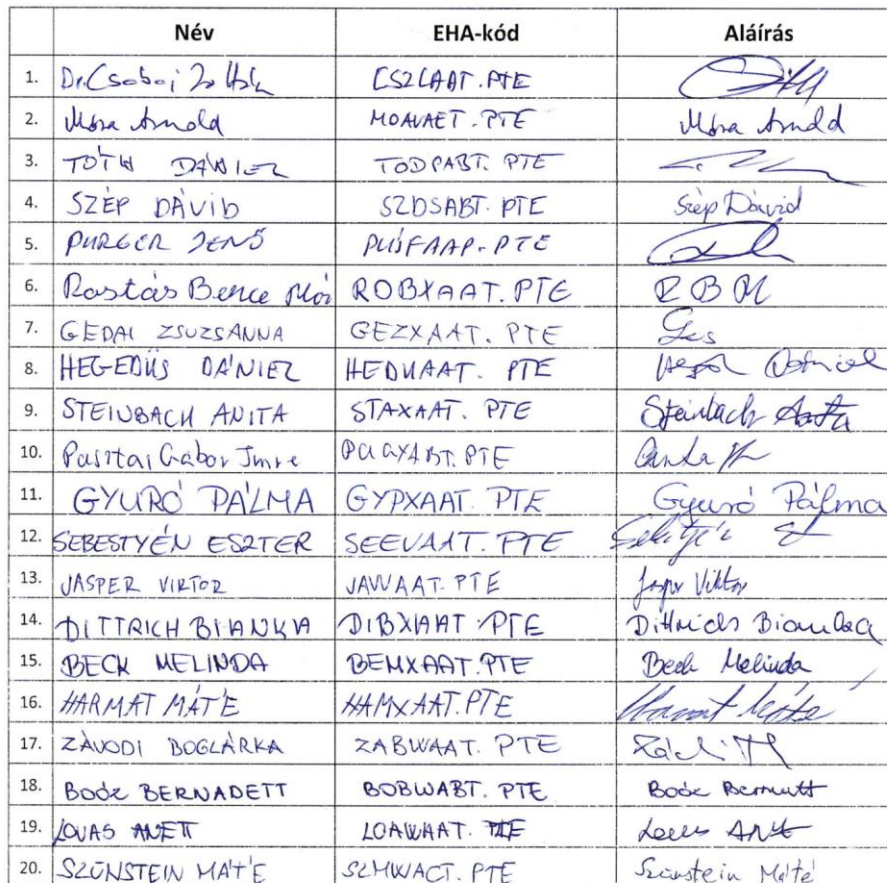 Név EHA-kód Aláírás
1. Dr. Csabai Zoltán CSZCAAT.PTE
2. Móra Arnold MOAVAET.PTE Móra Arnold
3. TÓTH DÁNIEL TODPABT.PTE
4. SZÉP DÁVID SZDSABT.PTE Szép Dávid
5. PURGER JENŐ PUJFAAP.PTE
6. Rostás Bence Mór ROBXAAT.PTE R B M
7. GEDAI ZSUZSANNA GEZXAAT.PTE
8. HEGEDŰS DÁNIEL HEDUAAT.PTE
9. STEINBACH ANITA STAXAAT.PTE Steinbach Anita
10. Pasztai Gábor Imre PAGYABT.PTE
11. GYURÓ PÁLMA GYPXAAT.PTE Gyuró Pálma
12. SEBESTYÉN ESZTER SEEVAAT.PTE
13. JASPER VIKTOR JAVVAAT.PTE Jasper Viktor
14. DITTRICH BIANKA DIBXAAT.PTE Dittrich Bianka
15. BECK MELINDA BEMXAAT.PTE Beck Melinda
16. HARMAT MÁTÉ HAMXAAT.PTE Harmat Máté
17. ZÁVODI BOGLÁRKA ZABWAAT.PTE
18. BOÓZ BERNADETT BOBWABT.PTE Boóz
19. LOVAS ANETT LOAWAAT.PTE
20. SZÜNSTEIN MÁTÉ SZMWACT.PTE Szünstein Máté